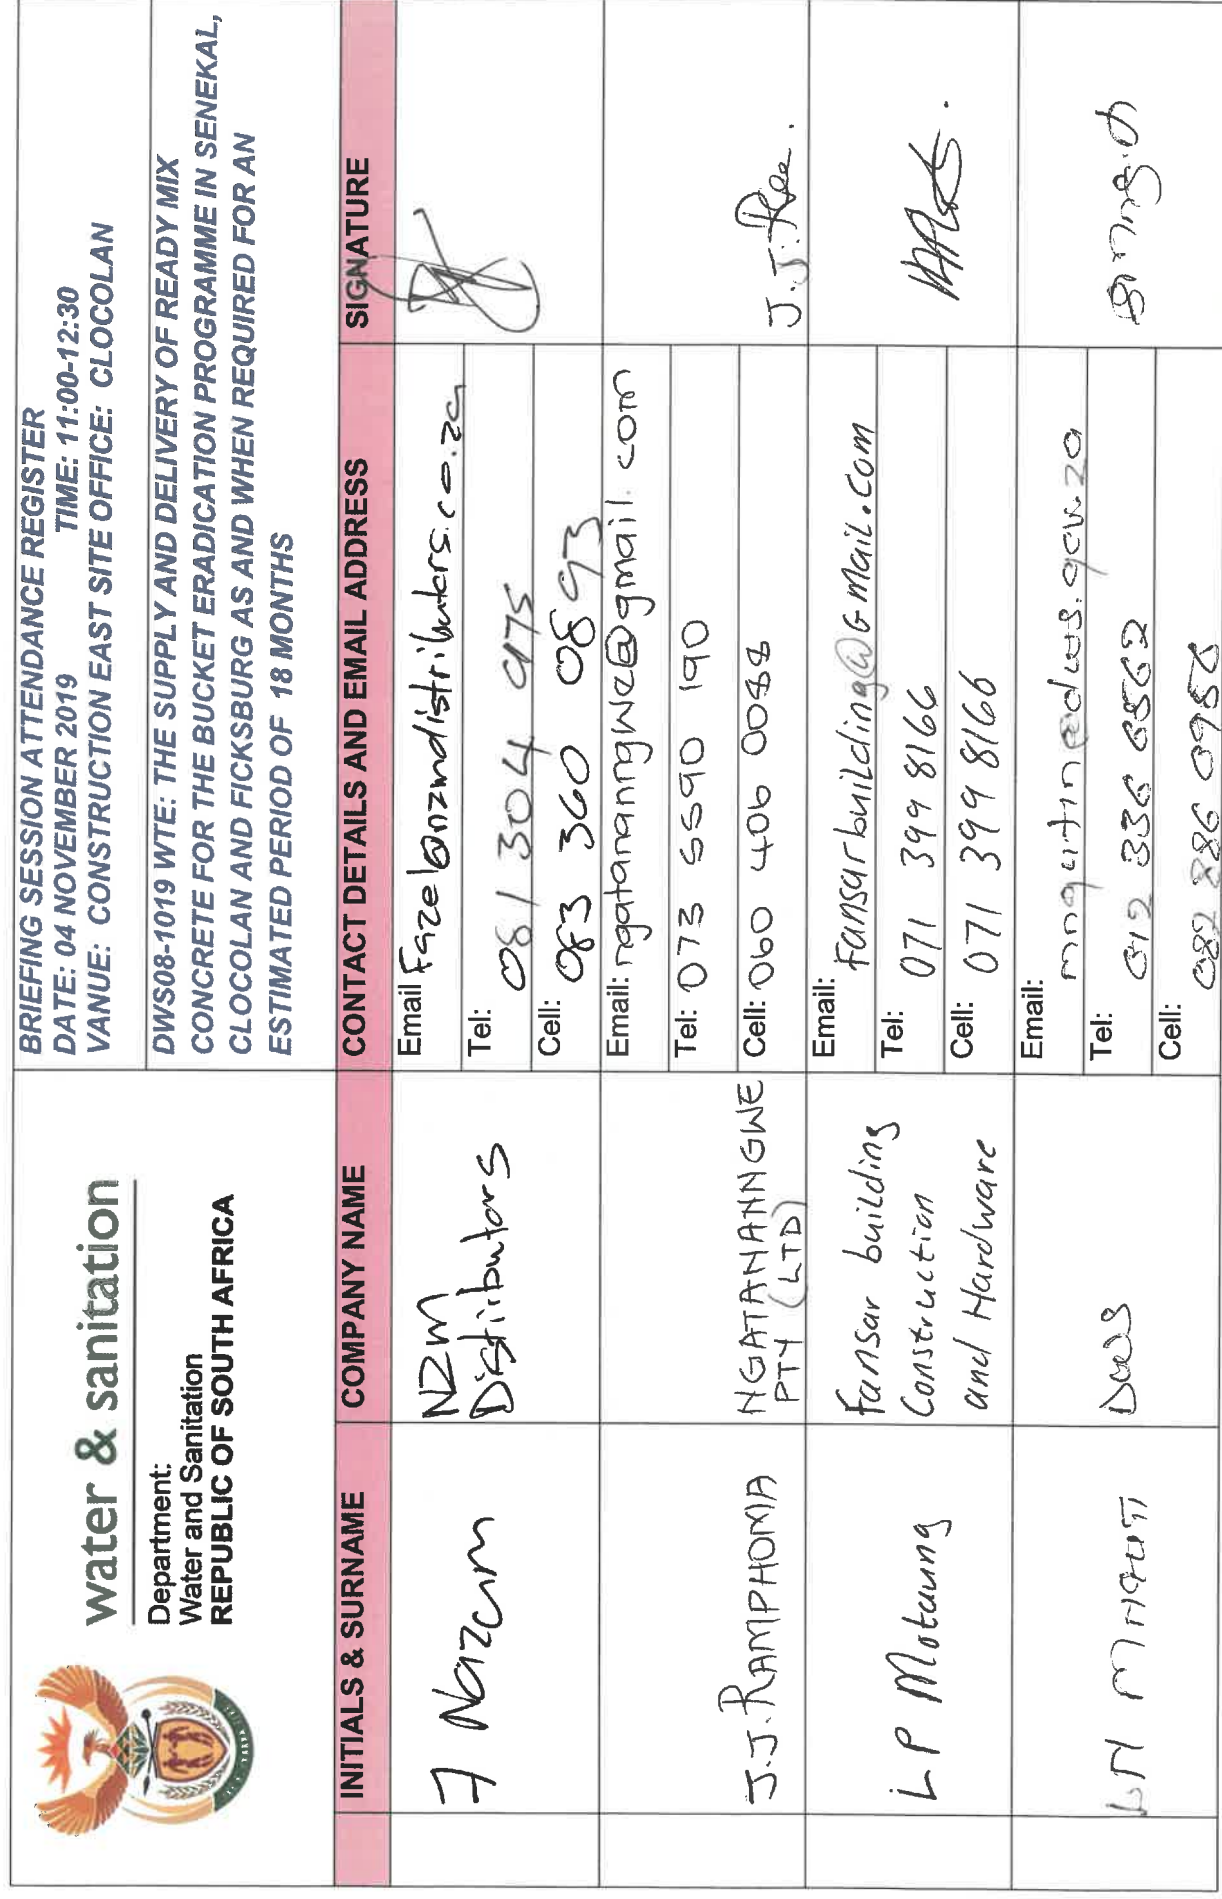 water & sanitation
Department:
Water and Sanitation
REPUBLIC OF SOUTH AFRICA
BRIEFING SESSION ATTENDANCE REGISTER
DATE: 04 NOVEMBER 2019 TIME: 11:00-12:30
VANUE: CONSTRUCTION EAST SITE OFFICE: CLOCOLAN
DWS08-1019 WTE: THE SUPPLY AND DELIVERY OF READY MIX
CONCRETE FOR THE BUCKET ERADICATION PROGRAMME IN SENEKAL,
CLOCOLAN AND FICKSBURG AS AND WHEN REQUIRED FOR AN
ESTIMATED PERIOD OF 18 MONTHS
INITIALS & SURNAME COMPANY NAME CONTACT DETAILS AND EMAIL ADDRESS SIGNATURE
F Nazam
NZM
Distributors
Email Fazel@nzmdistributors.co.za
Tel: 081 304 9175
Cell: 083 360 0893
J.J. RAMPHOMA
NGATANANNGWE
PTY (LTD)
Email: ngatananngwe@gmail.com
Tel: 073 5590 190
Cell: 060 406 0088
J.J.
LP Motaung
Fansar building
Construction
and Hardware
Email: fansarbuilding@Gmail.com
Tel: 071 399 8166
Cell: 071 399 8166
LN
DWS
Email:
Tel: 012 336 6562
Cell: 082 886 0956